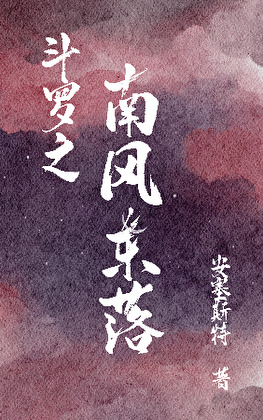 斗罗之
南风东落
安塞斯特 著